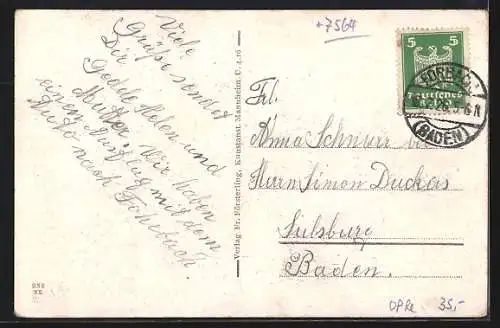 *7564
Viele
Grüße sendet
Dir
Godele Helen und
Mutter. Wir haben
einen Ausflug mit dem
Auto nach Forbach.
Verlag Fr. Försterling, Kunstanst. Mannheim. U. 4. 26
5 5
Deutsches Reich
FORBACH
5-6 N
(BADEN)
Frl.
Anna Schnurr bei
Herrn Simon Duckas
Sulzburg
Baden.
OPRe 35,-